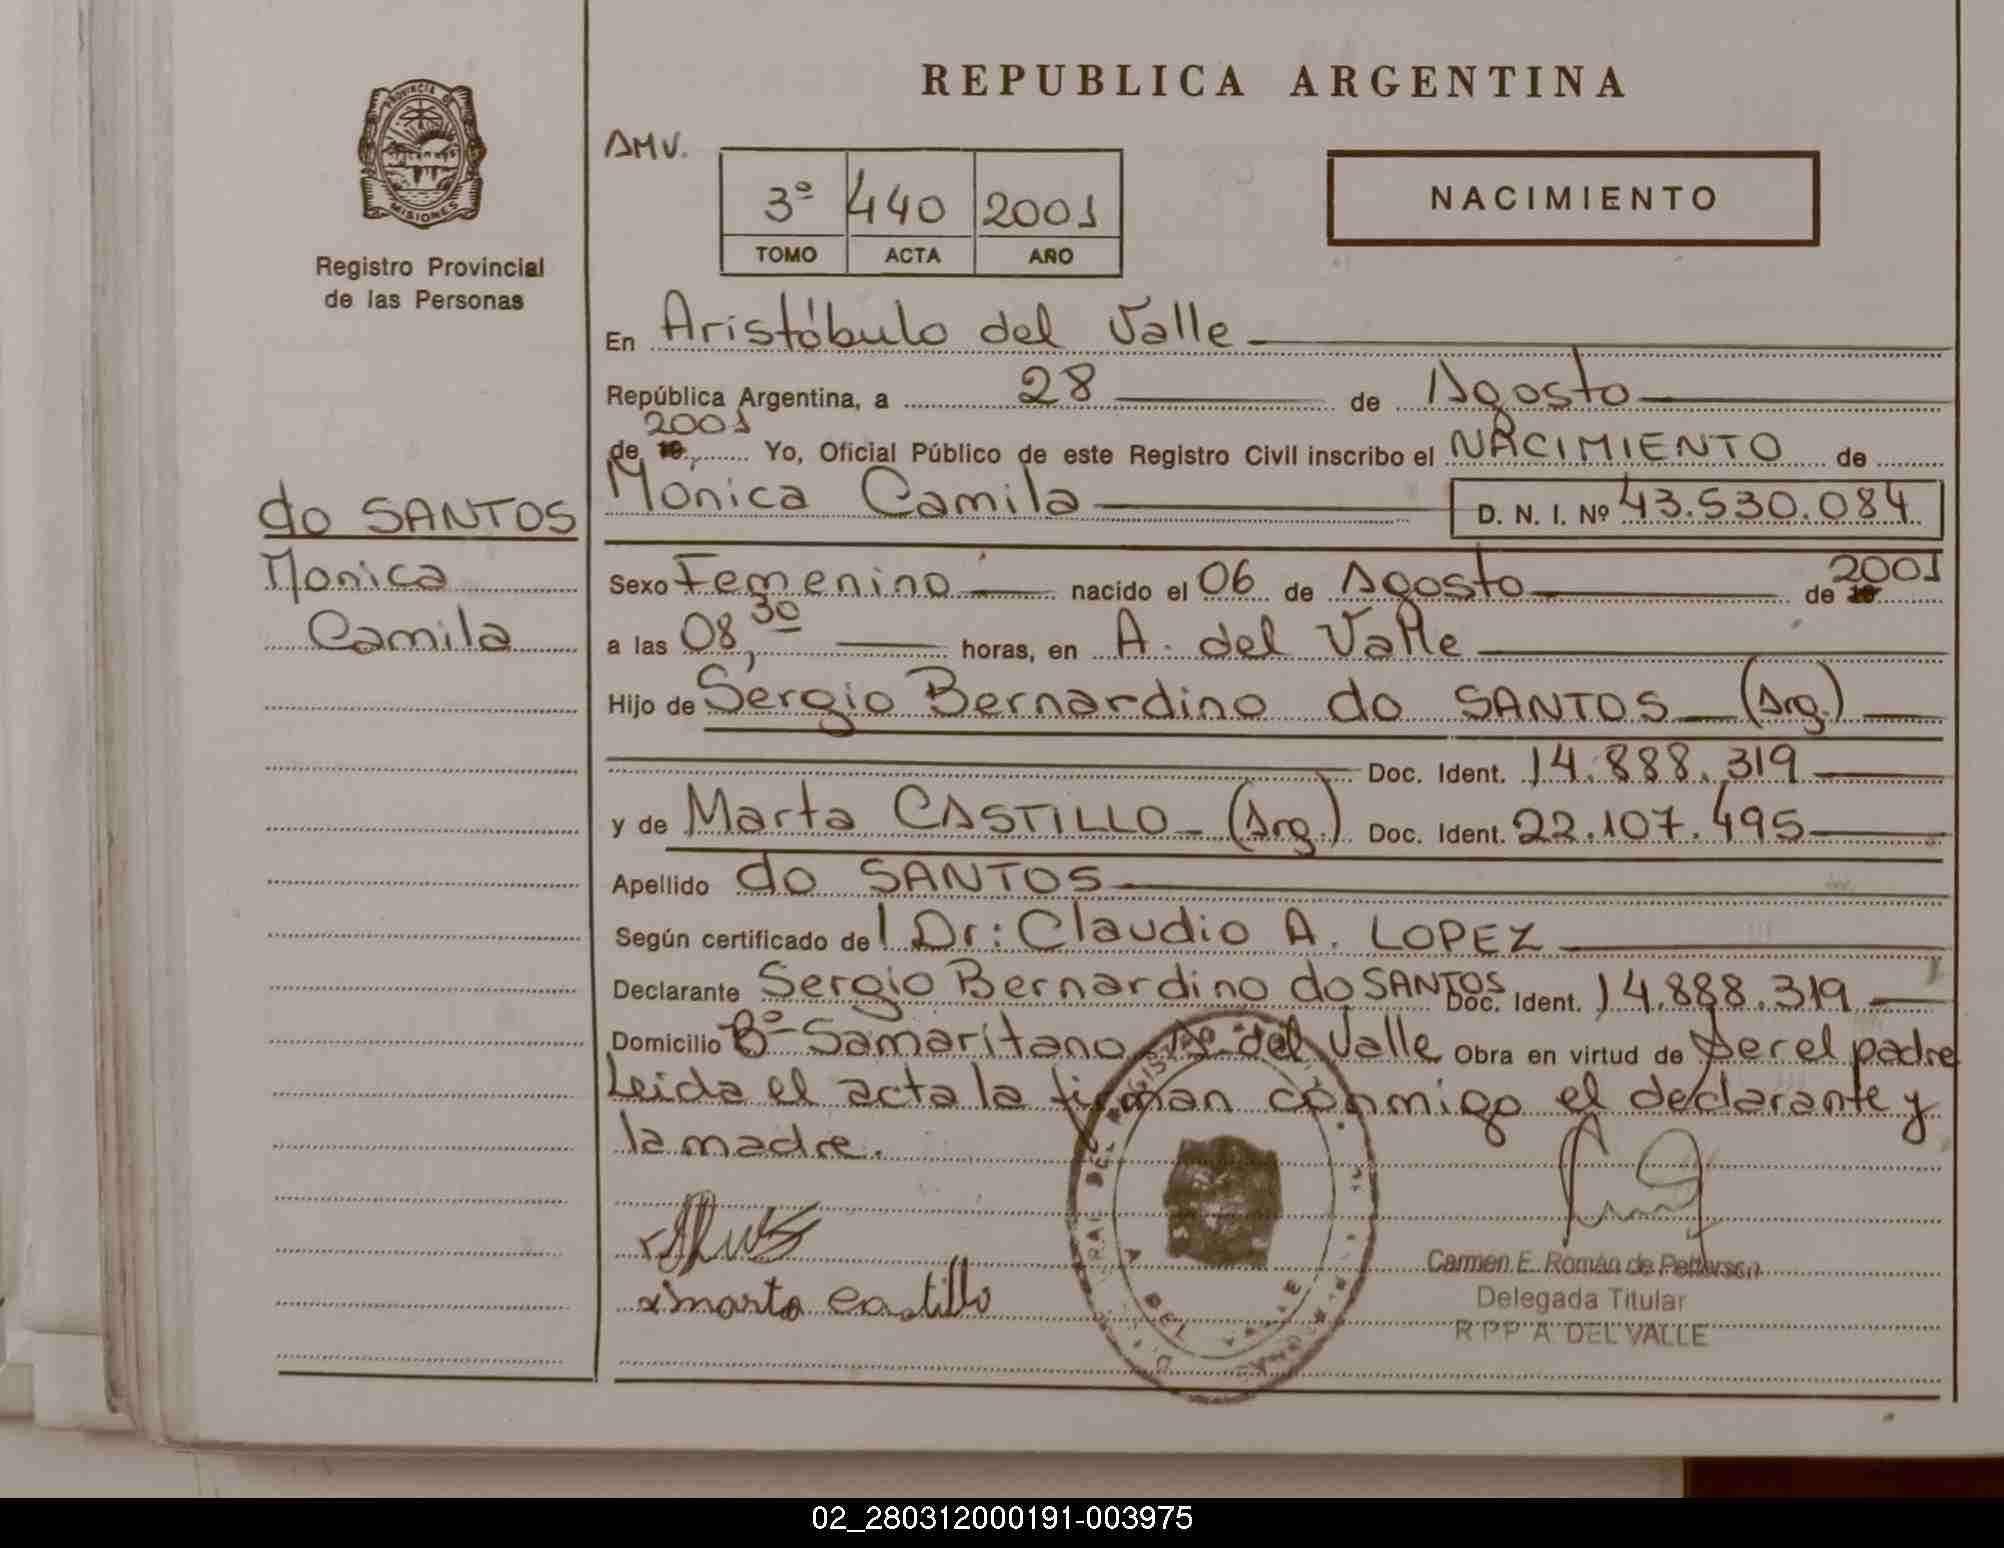 REPUBLICA ARGENTINA
PROVINCIA DE
MISIONES
Registro Provincial
de las Personas
AMV.
3º 440 2001
TOMO ACTA AÑO
NACIMIENTO
En Aristóbulo del Valle
República Argentina, a 28 de Agosto
2001
de 19, Yo, Oficial Público de este Registro Civil inscribo el NACIMIENTO de
do SANTOS
Monica
Camila
Monica Camila D. N. I. Nº 43.530.084
Sexo Femenino nacido el 06 de Agosto de 19 2001
a las 08,30 horas, en A. del Valle
Hijo de Sergio Bernardino do SANTOS (Arg.)
Doc. Ident. 14.888.319
y de Marta CASTILLO (Arg.) Doc. Ident. 22.107.495
Apellido do SANTOS
Según certificado del Dr: Claudio A. LOPEZ
Declarante Sergio Bernardino do SANTOS Doc. Ident. 14.888.319
Domicilio Bº Samaritano A. del Valle Obra en virtud de ser el padre
Leida el acta la firman conmigo el declarante y
la madre.
marta castillo
Carmen E. Román de
Delegada Titular
R P P A. DEL VALLE
A. DEL VALLE
02_280312000191-003975